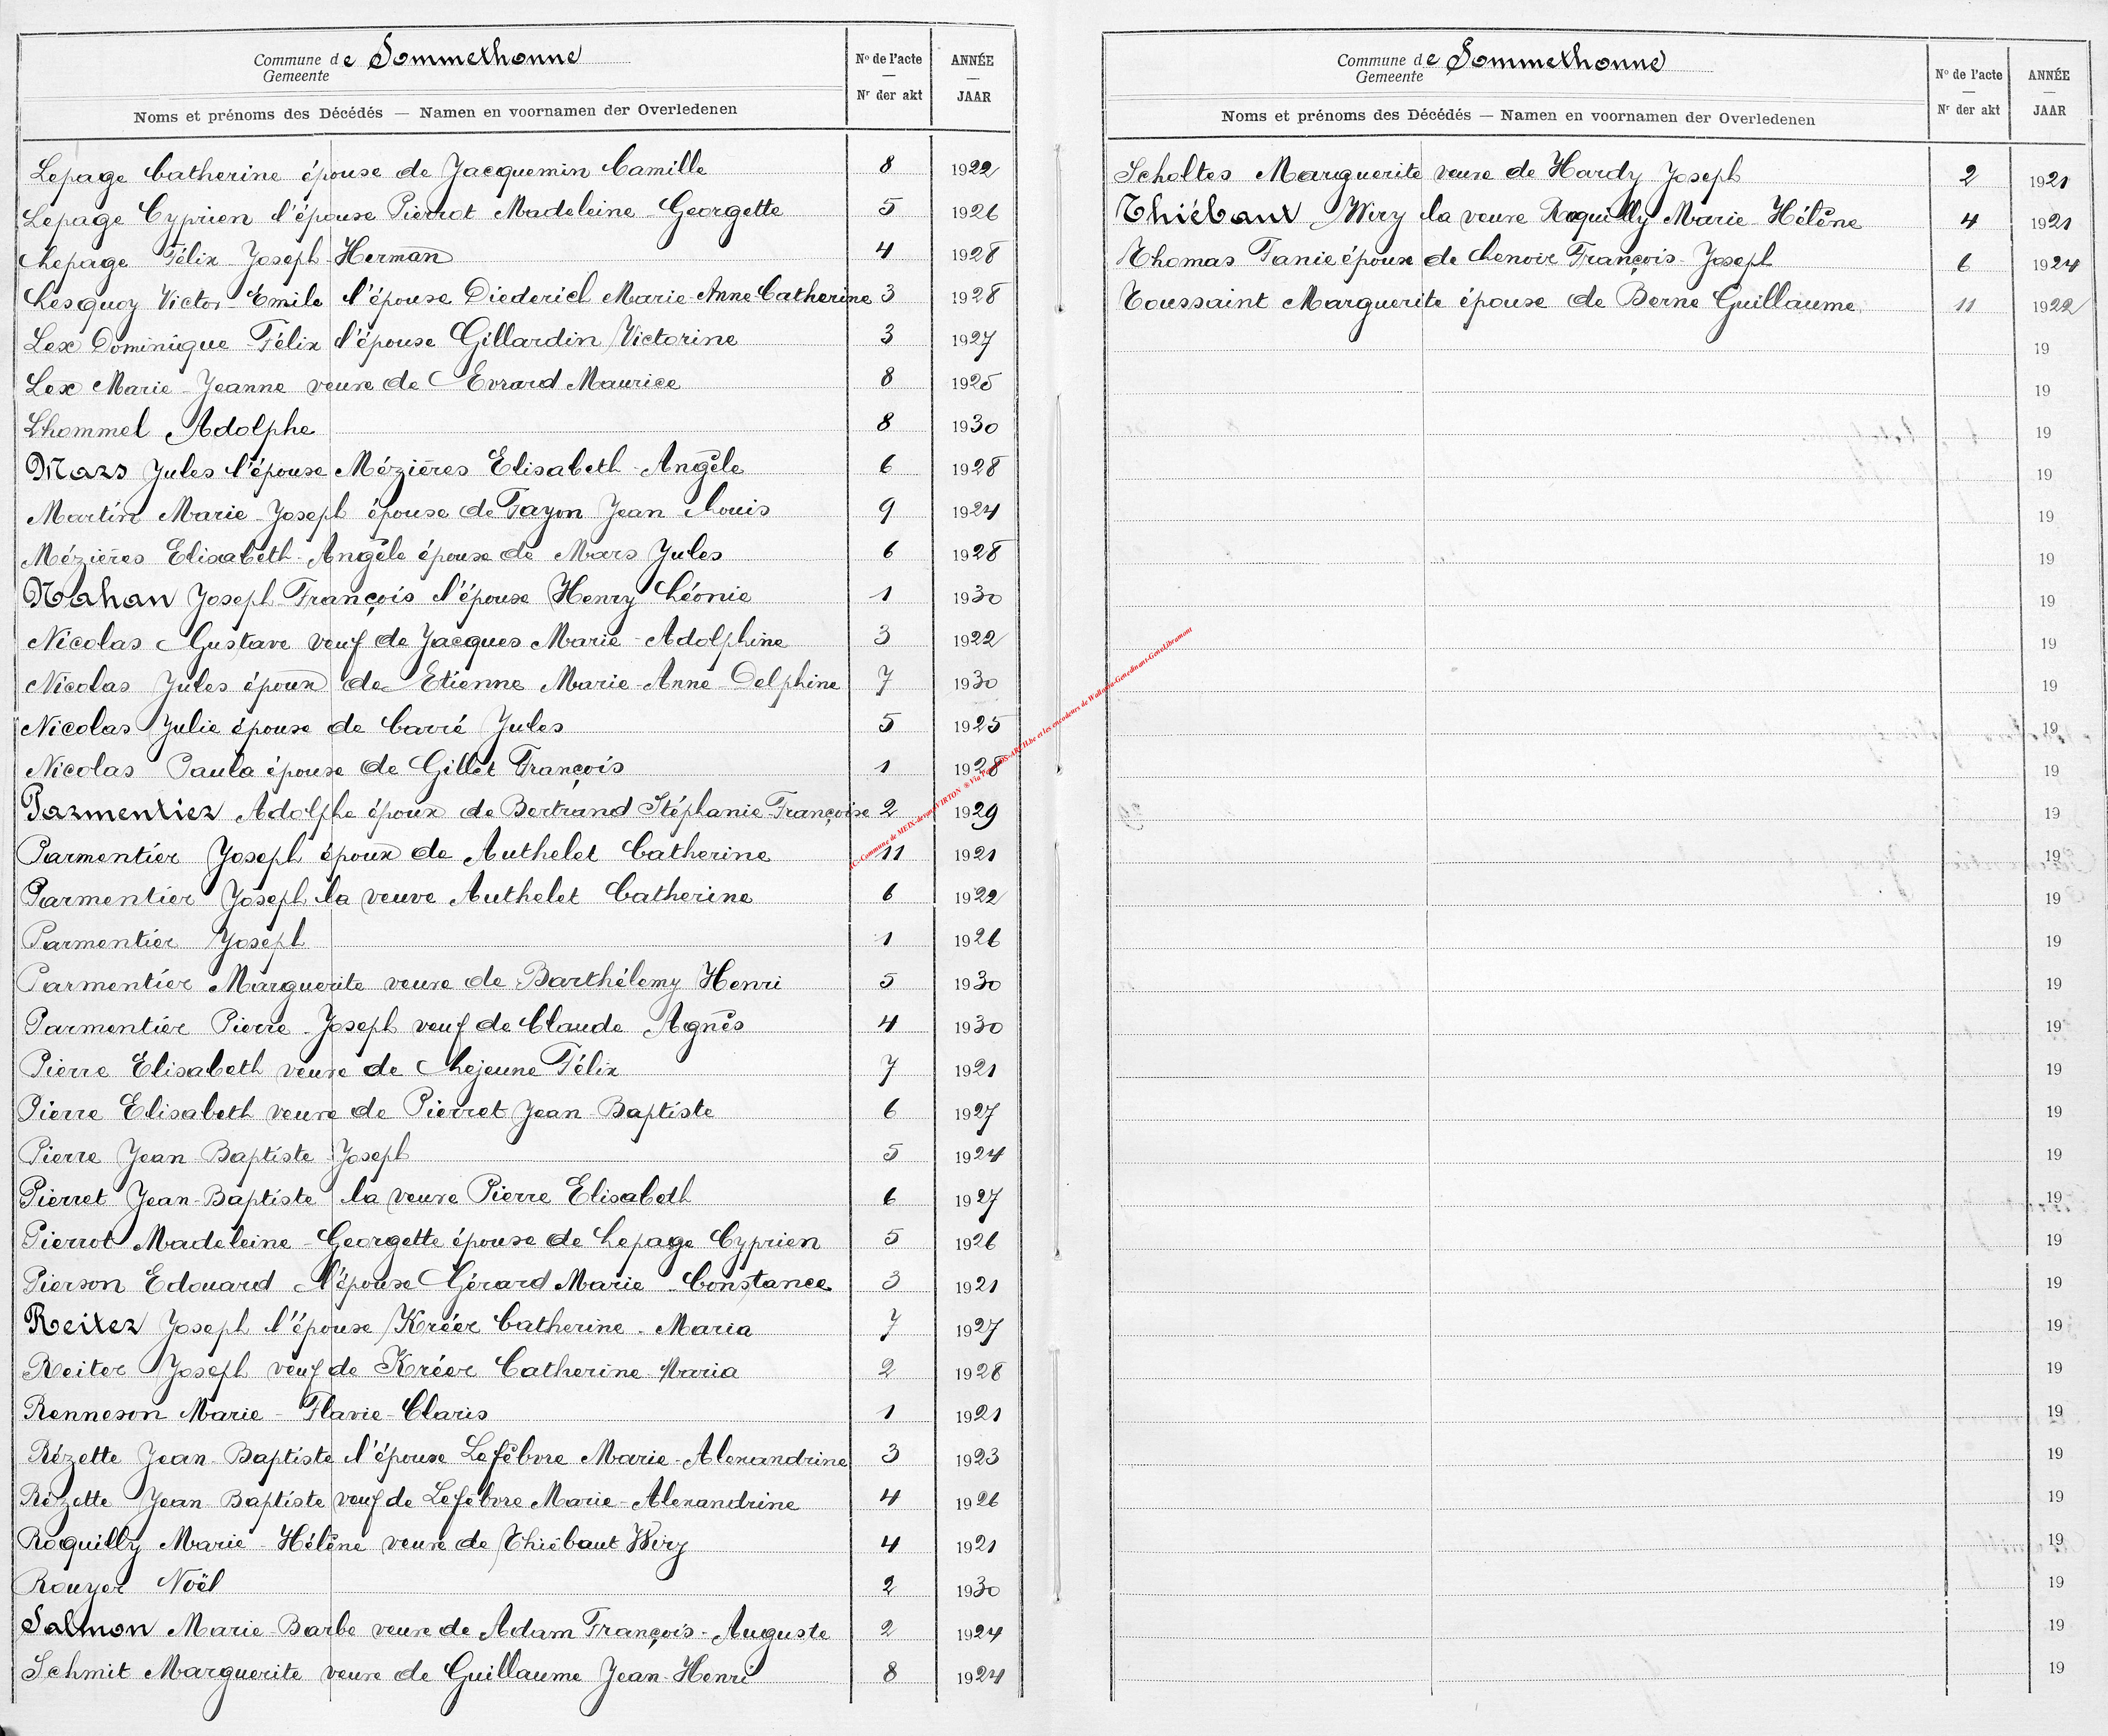 Commune de Sommethonne
Gemeente
Nº de l'acte
—
Nr der akt
ANNÉE
—
JAAR
Noms et prénoms des Décédés — Namen en voornamen der Overledenen
Lepage Catherine épouse de Jacquemin Camille 8 1922
Lepage Cyprien l'épouse Pierrot Madeleine-Georgette 5 1926
Lepage Félix Joseph-Herman 4 1928
Lesquoy Victor-Emile l'épouse Diederich Marie-Anne Catherine 3 1928
Lex Dominique Félix l'épouse Gillardin Victorine 3 1927
Lex Marie-Jeanne veuve de Evrard Maurice 8 1925
Lhommel Adolphe 8 1930
Mars Jules l'épouse Mézières Elisabeth-Angèle 6 1928
Martin Marie-Joseph épouse de Fayon Jean Louis 9 1924
Mézières Elisabeth-Angèle épouse de Mars Jules 6 1928
Nahan Joseph-François l'épouse Henry Léonie 1 1930
Nicolas Gustave veuf de Jacques Marie-Adolphine 3 1922
Nicolas Jules époux de Etienne Marie-Anne-Delphine 7 1930
Nicolas Julie épouse de Carré Jules 5 1925
Nicolas Paula épouse de Gillet François 1 1928
Parmentier Adolphe époux de Bertrand Stéphanie-Françoise 2 1929
Parmentier Joseph époux de Authelet Catherine 11 1921
Parmentier Joseph la veuve Authelet Catherine 6 1922
Parmentier Joseph 1 1926
Parmentier Marguerite veuve de Barthélemy Henri 5 1930
Parmentier Pierre-Joseph veuf de Claude Agnès 4 1930
Pierre Elisabeth veuve de Lejeune Félix 7 1921
Pierre Elisabeth veuve de Pierret Jean-Baptiste 6 1927
Pierre Jean-Baptiste-Joseph 5 1924
Pierret Jean-Baptiste la veuve Pierre Elisabeth 6 1927
Pierrot Madeleine-Georgette épouse de Lepage Cyprien 5 1926
Pierson Edouard l'épouse Gérard Marie-Constance 3 1921
Reiter Joseph l'épouse Kréer Catherine-Maria 7 1927
Reiter Joseph veuf de Kréer Catherine-Maria 2 1928
Renneson Marie-Flavie-Claris 1 1921
Rézette Jean-Baptiste l'épouse Lefèbvre Marie-Alexandrine 3 1923
Rézette Jean-Baptiste veuf de Lefèbvre Marie-Alexandrine 4 1926
Roquilly Marie-Hélène veuve de Thiébaut Wiry 4 1921
Rouyer Noël 2 1930
Salmon Marie-Barbe veuve de Adam François-Auguste 2 1924
Schmit Marguerite veuve de Guillaume Jean-Henri 8 1924
Commune de Sommethonne
Gemeente
Nº de l'acte
—
Nr der akt
ANNÉE
—
JAAR
Noms et prénoms des Décédés — Namen en voornamen der Overledenen
Scholtes Marguerite veuve de Hardy Joseph 2 1921
Thiébaux Wiry la veuve Roquilly Marie-Hélène 4 1921
Thomas Fanie épouse de Lenoir François-Joseph 6 1924
Toussaint Marguerite épouse de Berne Guillaume 11 1922
19
19
19
19
19
19
19
19
19
19
19
19
19
19
19
19
19
19
19
19
19
19
19
19
19
19
19
19
19
19
19
19